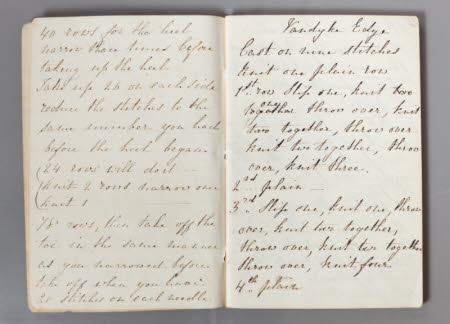 40 rows for the heel
narrow three times before
taking up the heel.
Take up 26 on each side
reduce the stitches to the
same number you had
before the heel began
(24 rows will do it —
(Knit 2 rows narrow one
(Knit 1
78 rows, then take off the
toe in the same manner
as you narrowed before
take off when you have
20 stitches on each needle
Vandyke Edge
Cast on nine stitches
Knit one plain row
1st row Slip one, knit two
together throw over, knit
two together, throw over
knit two together, throw
over, knit three.
2nd plain —
3rd Slip one, knit one, throw
over, knit two together,
throw over, knit two together
throw over, knit four
4th plain